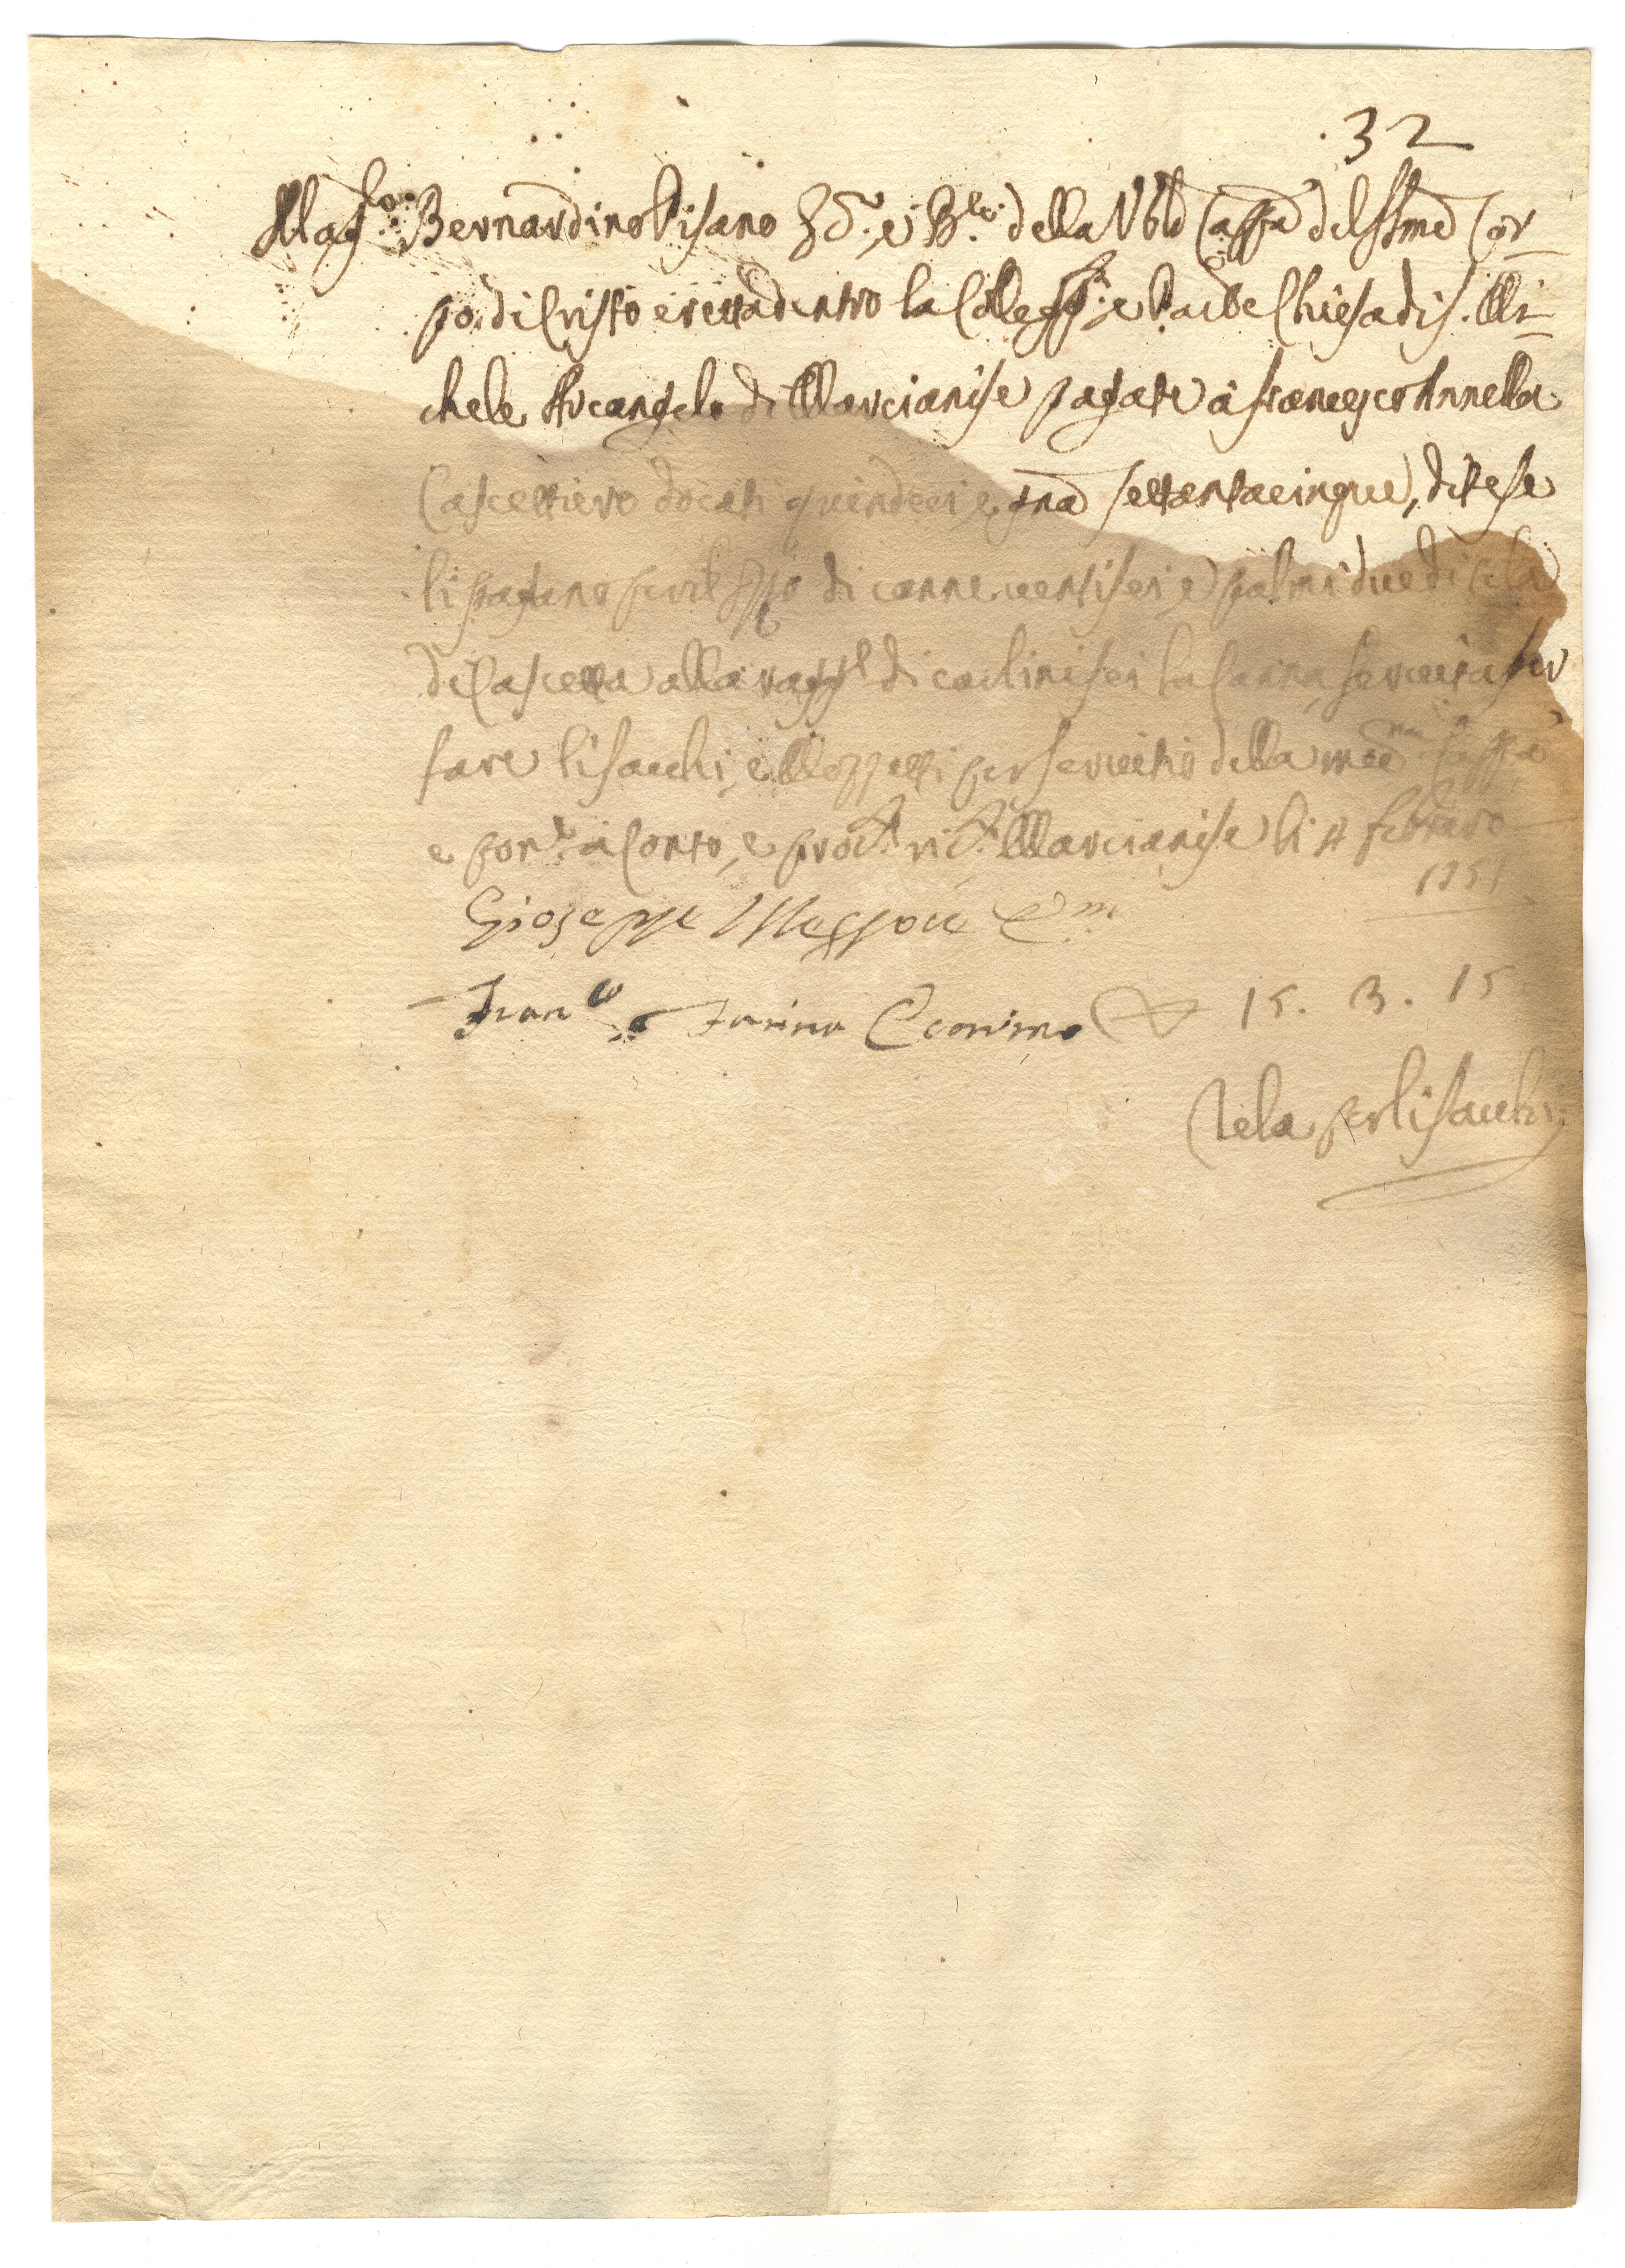 32
Mag.co Bernardino Pisano Ec.o, e B.le della V.ble Cappa del SSmo Cor-
po di Cristo eretta dentro la Colleg.ta, e Parle Chiesa di S. Mi-
chele Arcangelo di Marcianise pagate à Francesco Annella
Cascettiero docati quindeci, e gna settantacinque, dite se
li pagano per il prezzo di canne ventisei, e palmi due di tela
di Cascetta alla ragg.e di carlini sei la Canna, servita per
fare li sacchi, e Mezzetti per servitio della med.ma Cappa
e pon.te à Conto, e proc.ta ric.ta Marcianise li febraro
1751
Gioseppe Ec.m
Fran.co Farina Economo 15. 3. 15
Tela per li sacchi